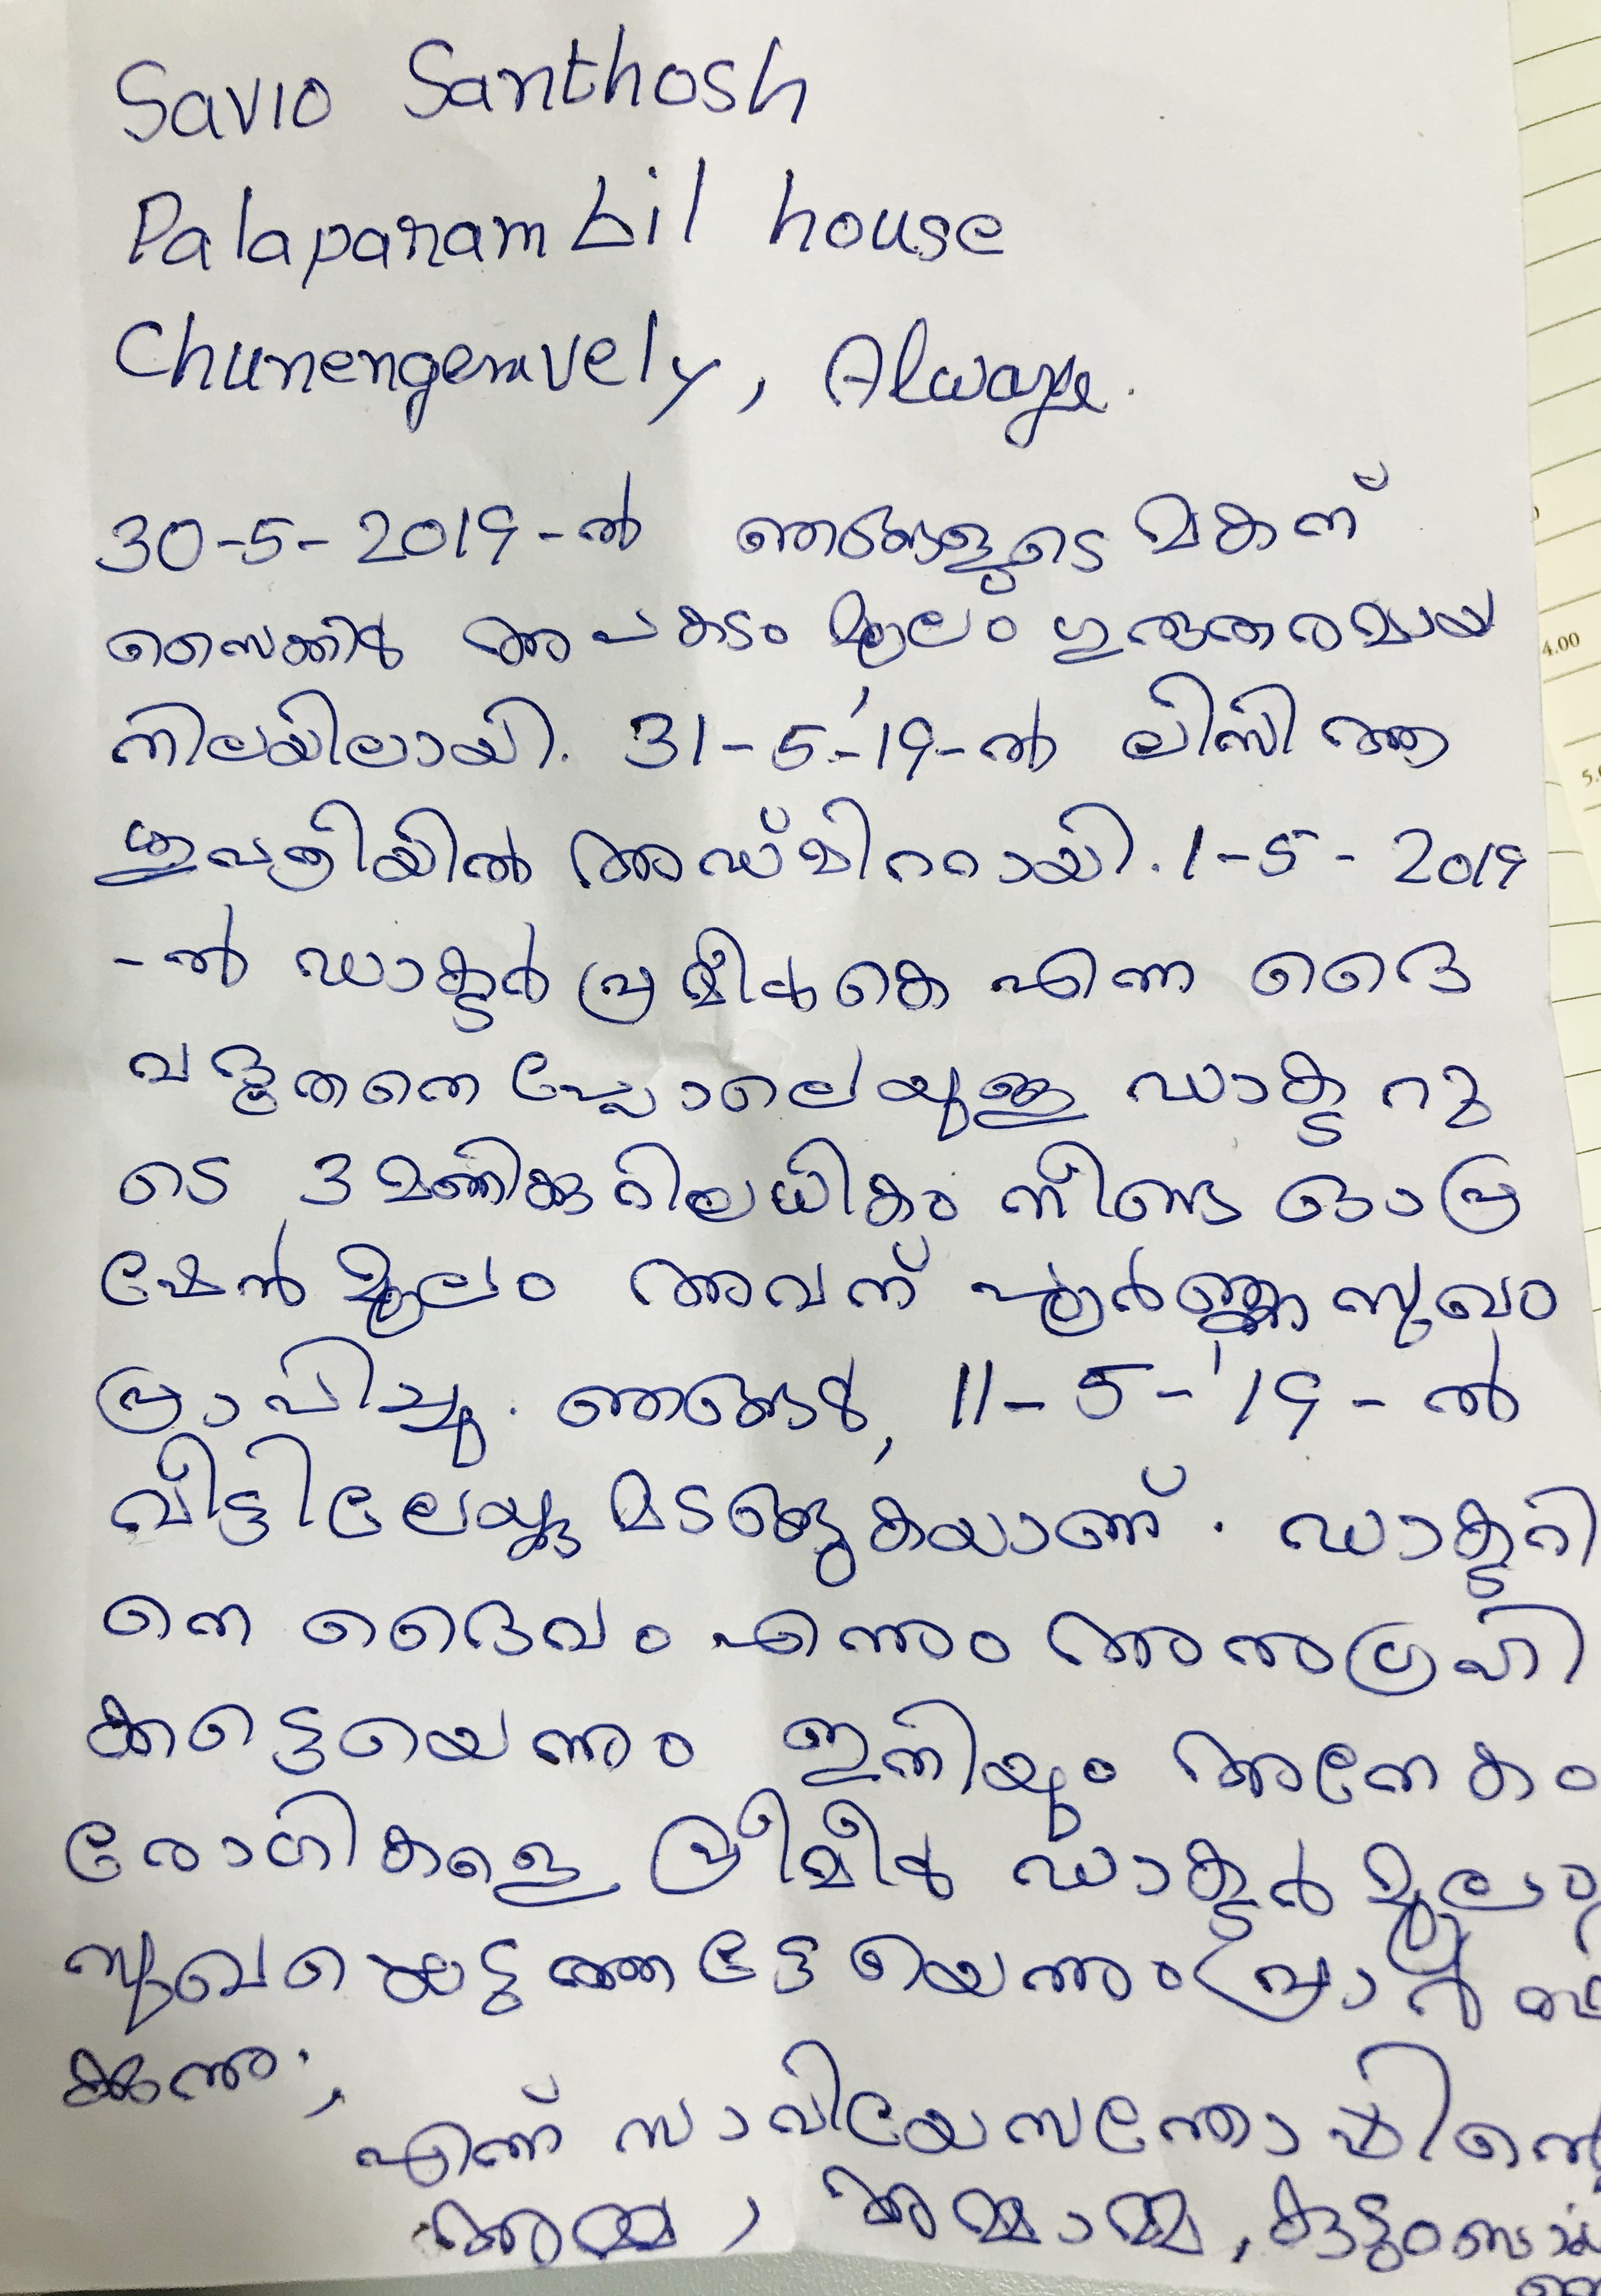 Savio Santhosh
Palaparambil house
Chunengemvely, Alwaye.
30-5-2019-ൽ ഞങ്ങളുടെ മകന്
സൈക്കിൾ അപകടം മൂലം ഗുരുതരമായ
നിലയിലായി. 31-5-'19-ൽ ലിസി ആ
ശുപത്രിയിൽ അഡ്മിററായി. 1-5-2019
-ൽ ഡാക്ടർ പ്രമീൾകെ എന്ന ദൈ
വദൂതനെപ്പോലെയുള്ള ഡാക്ടറു
ടെ 3 മണിക്കൂറിലധികം നീണ്ട ഓപ്ര
ഷേൻ മൂലം അവന് പൂർണ്ണ സുഖം
പ്രാപിച്ചു. ഞങ്ങൾ, 11-5-'19-ൽ
വീട്ടിലേയ്ക്കു മടങ്ങുകയാണ്. ഡാക്ടറി
നെ ദൈവം എന്നും അനുഗ്രഹി
ക്കട്ടെയെന്നും ഇനിയും അനേകം
രോഗികളെ പ്രീമീൾ ഡാക്ടർ മൂലം
സുഖപ്പെടുത്തട്ടേയെന്നും
ക്കുന്നു;
എന്ന് സാവിയേസന്തോഷിന്റെ
അമ്മ, അമ്മാമ്മ,